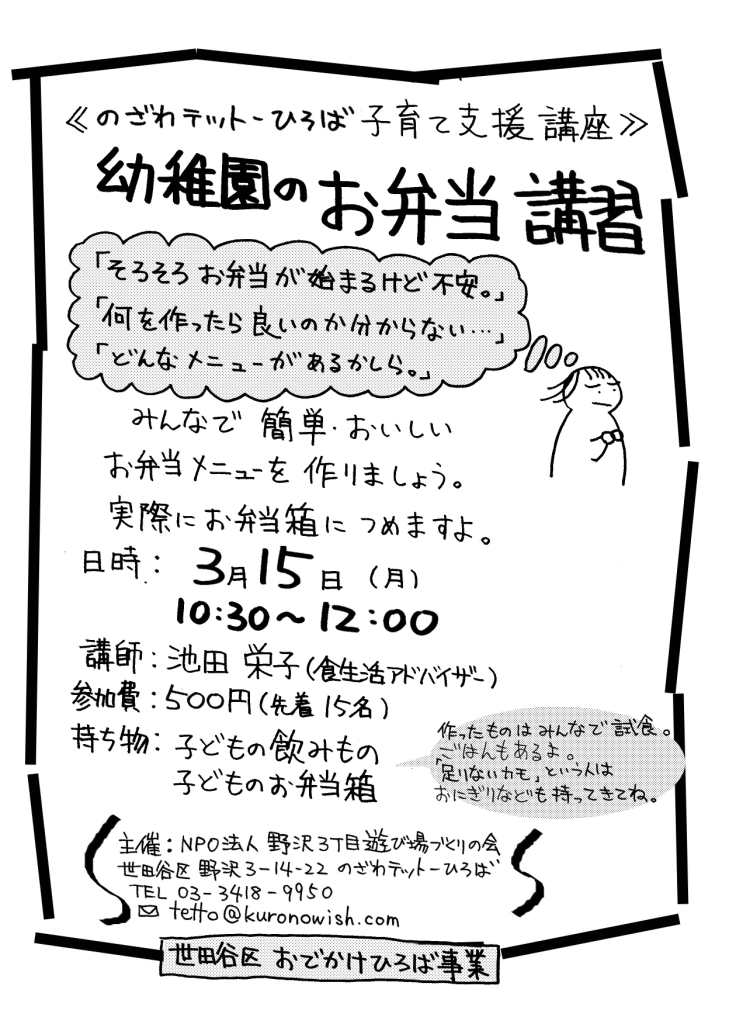 ≪のざわテットーひろば 子育て支援 講座≫
幼稚園の お弁当 講習
「そろそろ お弁当が 始まるけど 不安。」
「何を作ったら 良いのか分からない…」
「どんなメニューがあるかしら。」
みんなで 簡単・おいしい
お弁当メニューを 作りましょう。
実際に お弁当箱に つめますよ。
日時： 3月 15日 (月)
10:30〜12:00
講師：池田 栄子(食生活アドバイザー)
参加費：500円(先着 15名)
持ち物： 子どもの飲みもの
子どものお弁当箱
作ったものは みんなで 試食。
ごはんもあるよ。
「足りないカモ」という人は
おにぎりなども 持ってきてね。
主催：NPO法人 野沢3丁目遊び場づくりの会
世田谷区 野沢 3-14-22 のざわテットーひろば
TEL 03-3418-9950
✉ tetto@kuronowish.com
世田谷区 おでかけひろば事業